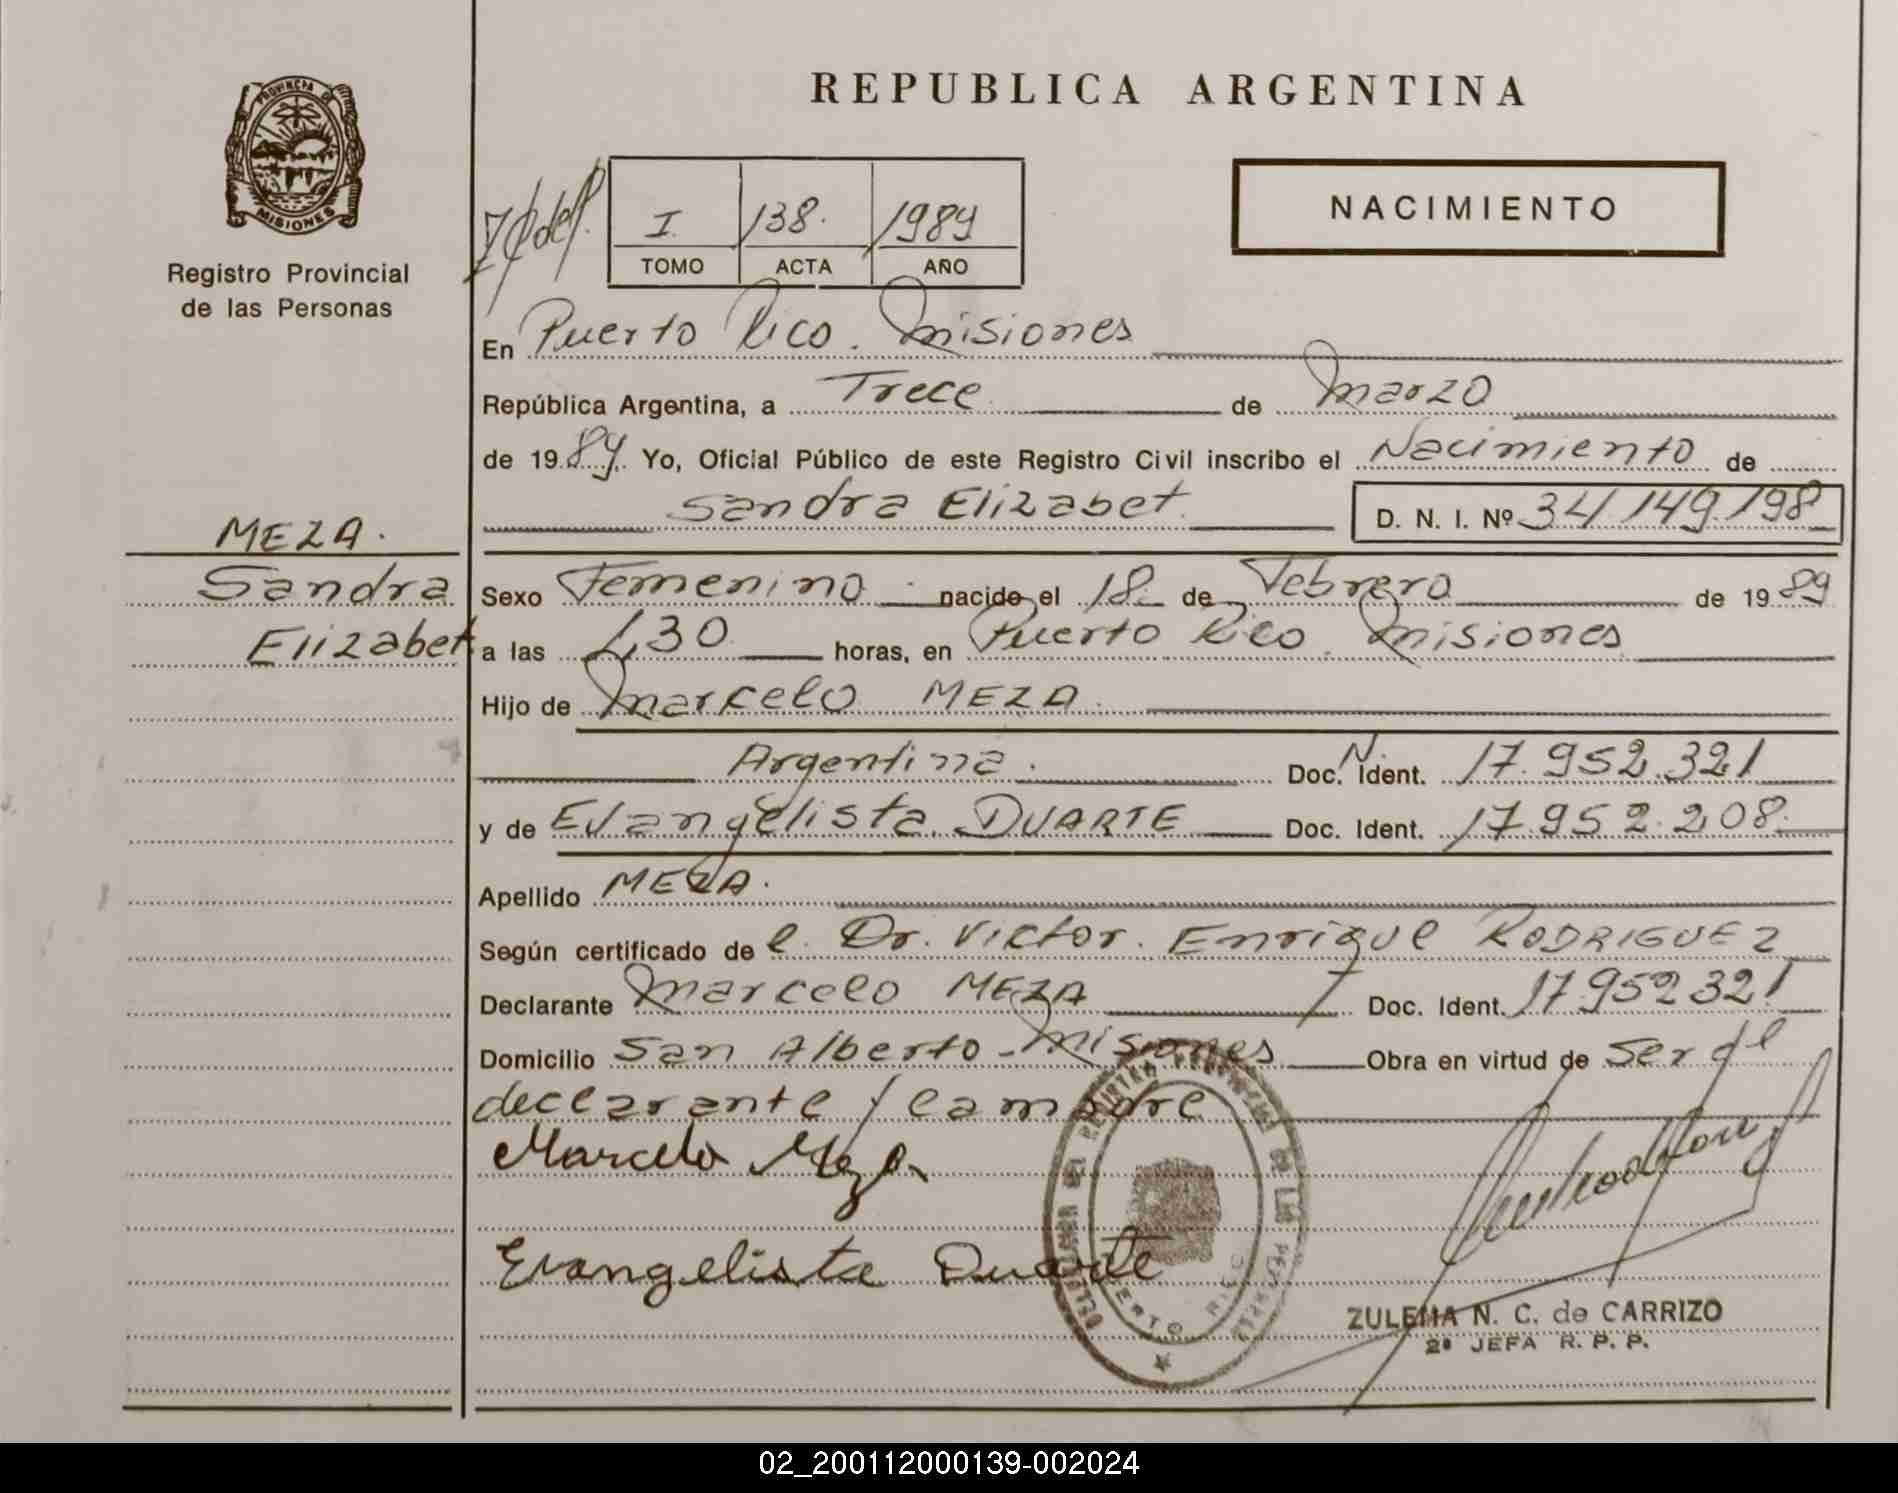 REPUBLICA ARGENTINA
PROVINCIA DE
MISIONES
Registro Provincial
de las Personas
NACIMIENTO
I 138. 1989
TOMO ACTA AÑO
En Puerto Rico. Misiones
República Argentina, a Trece de Marzo
de 1989. Yo, Oficial Público de este Registro Civil inscribo el Nacimiento de
Sandra Elizabet. D. N. I. Nº 34.149.198
MEZA.
Sandra
Elizabet
Sexo Femenino nacido el 18 de Febrero de 1989
a las 4,30 horas, en Puerto Rico. Misiones
Hijo de Marcelo MEZA.
Argentina. Doc. N. Ident. 17.952.321
y de Evangelista DUARTE Doc. Ident. 17.952.208.
Apellido MEZA.
Según certificado de l. Dr. Victor. Enrique RODRIGUEZ
Declarante Marcelo MEZA Doc. Ident. 17.952321
Domicilio San Alberto - Misiones Obra en virtud de Ser el
declarante y la madre
Marcelo Meza
Evangelista Duarte
DELEGACION DEL REGISTRO PROVINCIAL DE LAS PERSONAS
PUERTO RICO
ZULEMA N. C. de CARRIZO
2ª JEFA R. P. P.
02_200112000139-002024